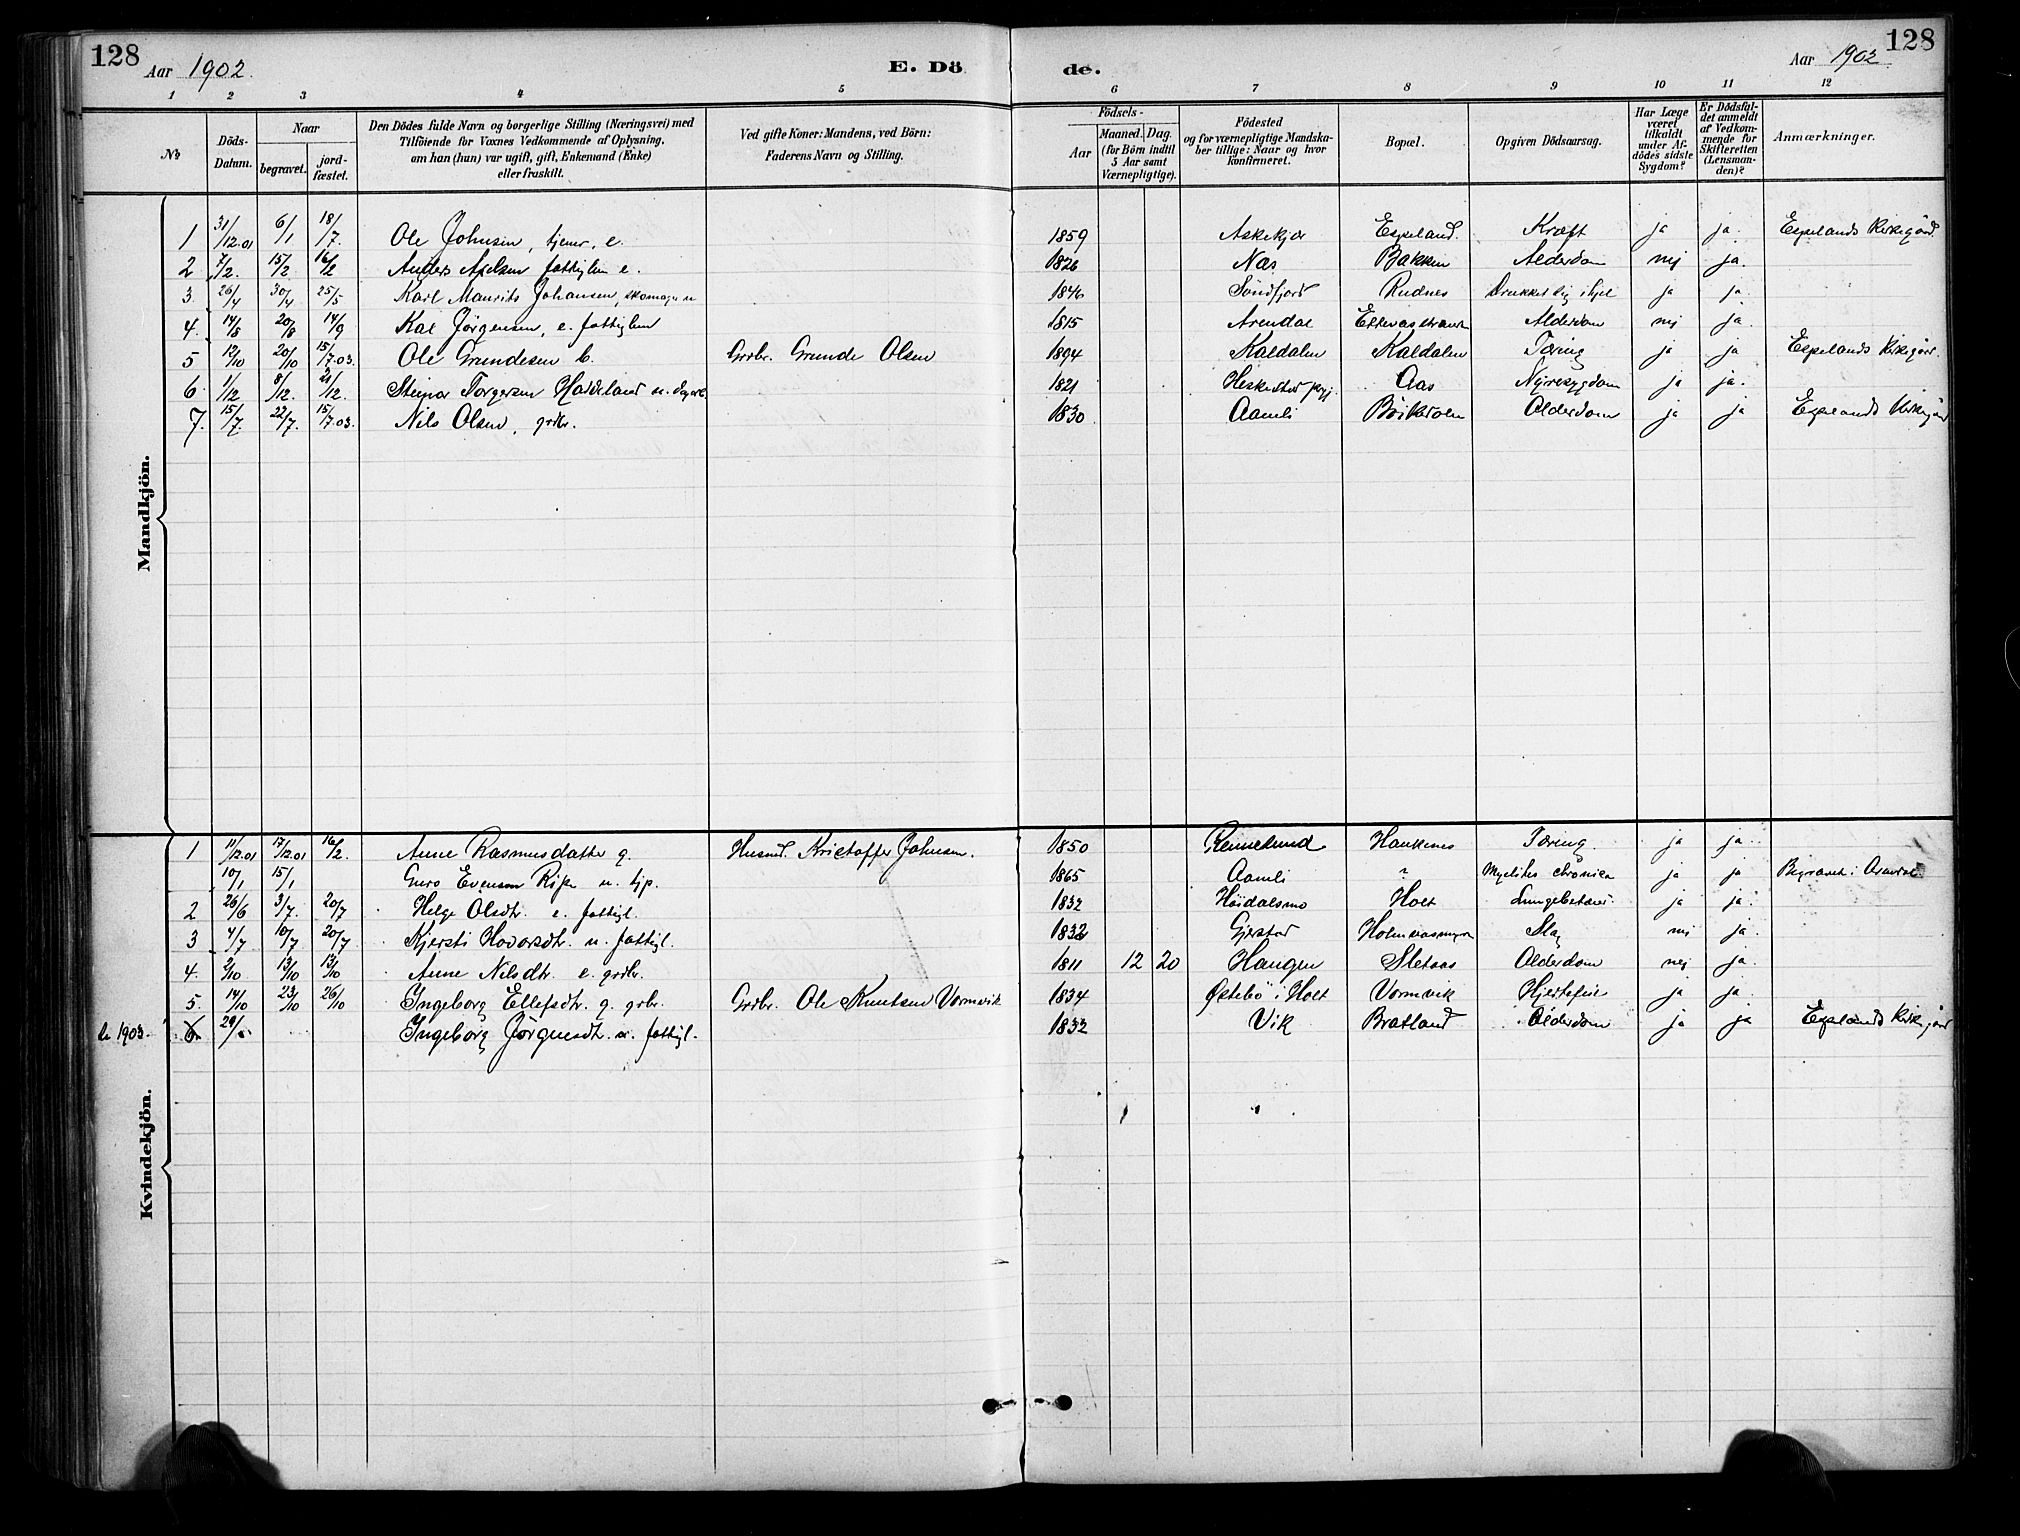 128
128
Aar 1902.
E. Dö de.
Aar 1902
1 2 3 4 5 6 7 8 9 10 11 12
No
Döds-Datum.
Naar
begravet.
jord-fæstet.
Den Dödes fulde Navn og borgerlige Stilling (Næringsvei) med
Tilföiende for Voxnes Vedkommende af Oplysning,
om han (hun) var ugift, gift, Enkemand (Enke)
eller fraskilt.
Ved gifte Koner: Mandens, ved Börn:
Faderens Navn og Stilling.
Födsels-
Aar
Maaned. Dag.
(for Börn indtil
5 Aar samt
Værnepligtige).
Födested
og for værnepligtige Mandska-
ber tillige: Naar og hvor
konfirmeret.
Bopæl.
Opgiven Dödsaarsag.
Har Læge
været
tilkaldt
under Af-
dödes sidste
Sygdom?
Er Dödsfal-
det anmeldt
af Vedkom-
mende for
Skifteretten
(Lensman-
den)?
Anmærkninger.
Mandkjön.
1 31/12.01 6/1 18/7. Ole Johnsen, tjener, e. 1859 Askekjær Espeland. Kræft ja ja. Espelands Kirkegård.
2 7/2. 15/2 16/2 Anders Axelsen fattiglem e. 1826 Næs Bakken Alderdom nej ja.
3. 26/4 30/4 25/5 Karl Maurits Johansen, skomager u 1846 Söndfjord Rudnes Drukket sig ihjel ja ja
4. 14/8 20/8 14/9 Kal Jörgensen, e. fattiglem 1815 Arendal Alderdom nej ja.
5 12/10 20/10 15/7.03. Ole Grundesen b. Grdbr. Grunde Olsen 1894 Kaldalen Kaldalen Tæring ja ja Espelands Kirkegård.
6. 1/12 8/12. 21/12. Torgersen Haddeland u. dagarb. 1821 Heskestad prgj. Aas Nyresygdom ja ja.
7. 15/7. 22/7. 15/7.03. Nils Olsen, grdbr. 1830 Aamli Alderdom ja ja Espelands Kirkegård
Kvindekjön.
1 11/12.01 17/12.01 16/2. Anne Rasmusdatter g. Husmd. Kristoffer Johnsen. 1850 Haukenes Tæring ja ja
10/1 15/1 Guro Evensen u. tjp. 1865 Aamli " Myelitis chronica ja ja Begravet i Arendal.
2 26/6 3/7. 20/7 Helge Olsdtr. e. fattigl. 1832 Höidalsmo Holt Lungebetæn ja ja.
3 4/7 10/7 20/7 Kjersti Hovorsdtr. u. fattigl. 1832 Gjerstad Holmvasmyra Slag nej ja.
4. 2/10 13/10 13/10 Anne Nilsdtr. e. grdbr. 1811 12 20 Haugen Sletaas Alderdom nej ja.
5. 14/10 23/10 26/10 Ingeborg Ellefsdtr. g. grbr. Grdbr. Ole Knutsen Vormvik 1834 Östebö i Holt Vormvik Hjertefeil ja ja.
1903. 6 Ingeborg Jörgensdtr. u. fattigl. 1832 Vik Bratland Alderdom ja ja Espelands Kirkegård